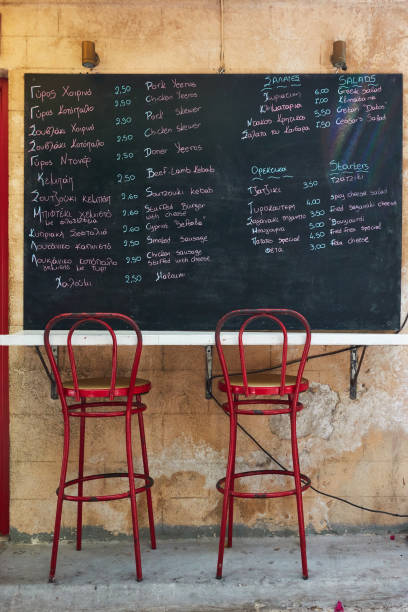 Γύρος Χοιρινό 2,50 Pork Yeeros
Γύρος Κοτόπουλο 2,50 Chicken Yeeros
Σουβλάκι Χοιρινό 2,50 Pork Skewer
Σουβλάκι Κοτόπουλο 2,50 Chicken Skewer
Γύρος Ντονέρ 2,50 Doner Yeeros
Κεμπάπ 2,50 Beef-Lamb Kebab
Σουτζούκι κεμπάπ 2,60 Soutzouki kebab
Μπιφτέκι γεμιστό 2,60 Stuffed Burger
with cheese
Κυπριακή Σεφταλιά 2,60 Cyprus Seftalie
Λουκάνικο καπνιστό 2,50 Smoked Sausage
Λουκάνικο κοτόπουλο 2,50 Chicken Sausage
γεμιστό με τυρί stuffed with cheese
Χαλούμι 2,50 Haloumi
Σαλάτες SALADS
Χωριάτικη 6,00 Greek salad
5,00
Ντάκος Κρητικός 5,50 Cretan Dakos
Σαλάτα του Καίσαρα 5,50 Ceasars Salad
Ορεκτικά Starters
Τζατζίκι 3,50 Tzatziki
Τυροκαυτερή 4,00 spicy cheese salad
3,50 Fried cheese
5,00 Bouyiourdi
Πατάτα special 4,50 Fried fries special
Φέτα 3,00 Feta cheese